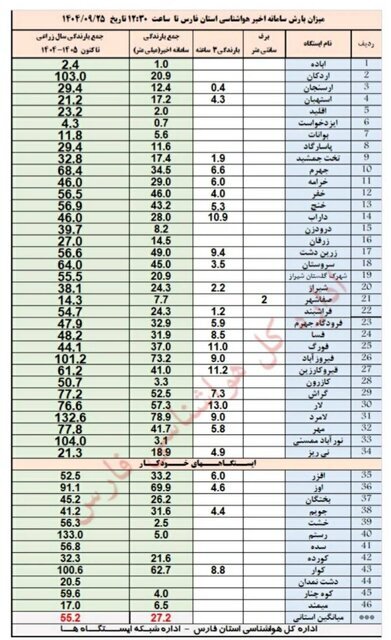 میزان بارش سامانه اخیر هواشناسی استان فارس تا ساعت ۱۲:۳۰ تاریخ ۱۴۰۴/۰۹/۲۵
ردیف نام ایستگاه برف سانتی متر بارندگی ۳ ساعته جمع بارندگی سامانه اخیر (میلی متر) جمع بارندگی سال زراعی تا کنون ۱۴۰۵-۱۴۰۴
1 آباده 1.0 2.4
2 اردکان 20.9 103.0
3 ارسنجان 0.4 12.4 29.4
4 استهبان 4.3 17.2 21.2
5 اقلید 2.0 23.2
6 ایزدخواست 0.7 4.3
7 بوانات 5.6 11.8
8 پاسارگاد 11.6 29.4
9 تخت جمشید 1.9 17.4 32.8
10 جهرم 6.6 34.5 68.4
11 خرامه 6.0 29.0 46.0
12 خفر 4.0 46.0 56.5
13 خنج 5.3 43.2 56.9
14 داراب 10.9 28.0 46.0
15 درودزن 8.2 39.7
16 زرقان 14.5 27.0
17 زرین دشت 9.4 49.0 56.6
18 سروستان 3.5 45.0 64.0
19 شهرک گلستان شیراز 20.9 55.5
20 شیراز 2.2 24.3 38.1
21 صفاشهر 2 7.7 14.3
22 فراشبند 1.2 24.3 54.7
23 فرودگاه جهرم 5.9 32.9 47.9
24 فسا 8.5 31.9 48.2
25 فورگ 11.0 37.0 44.1
26 فیروزآباد 9.0 73.2 101.2
27 قیروکارزین 11.2 41.0 61.2
28 کازرون 3.3 50.7
29 گراش 7.3 52.5 77.2
30 لار 13.0 57.3 76.6
31 لامرد 9.0 78.9 132.6
32 مهر 5.8 41.7 77.8
33 نورآباد ممسنی 3.1 104.0
34 نی ریز 4.9 18.9 21.3
ایستگاههای خودکار
35 افزر 6.0 33.2 52.5
36 اوز 4.6 69.9 91.1
37 بختگان 26.2 45.2
38 جویم 4.4 31.6 41.2
39 خشت 2.5 56.3
40 رستم 5.0 133.0
41 سده 56.8
42 کورده 21.6 32.3
43 کوار 8.8 62.7 100.6
44 دشت نمدان 20.5
45 کوه چنار 4.0 59.6
46 میمند 6.5 17.0
*** میانگین استانی 27.2 55.2
اداره کل هواشناسی استان فارس - اداره شبکه ایستگاه ها
اداره کل هواشناسی فارس